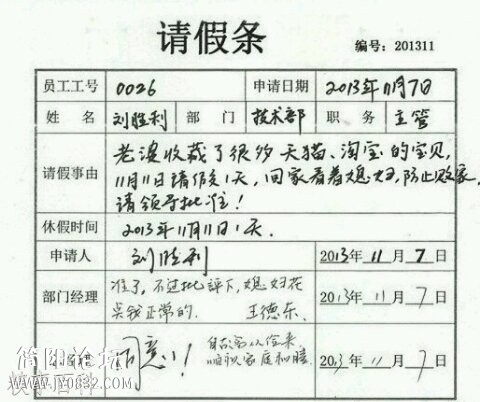 请假条
编号：201311
员工工号 0026 申请日期 2013年11月7日
姓名 刘胜利 部门 技术部 职务 主管
请假事由 老婆收藏了很多天猫、淘宝的宝贝，
11月11日请假1天，回家看着媳妇，防止败家，
请领导批准！
休假时间 2013年11月11日1天。
申请人 刘胜利 2013年11月7日
部门经理 准了，不过批评下，媳妇花
买钱正常的． 王德东． 2013年11月7日
同意！ 2013年11月7日
简阳论坛
www.jy0832.com